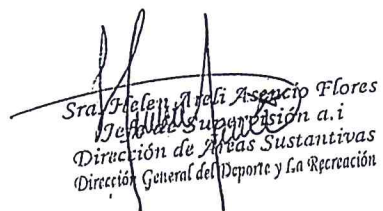 Sra. Helen Areli Asencio Flores
Jefa de Supervisión a.i
Dirección de Áreas Sustantivas
Dirección General del Deporte y La Recreación